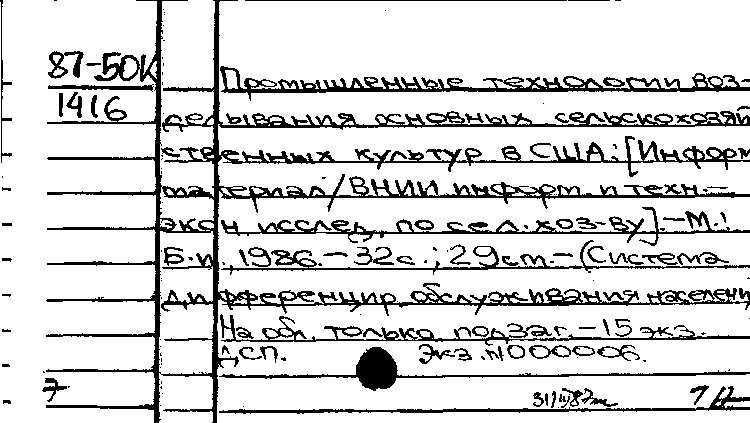 87-50К
1416
Промышленные технологии воз-
делывания основных сельскохозяй
ственных культур в США: [Информ
материал/ВНИИ информ. и техн.-
экон. исслед. по сел. хоз-ву].-М.:
Б.и., 1986.-32с.; 29см.-(Система
дифференцир. обслуживания населени
На обл. только подзаг.-15 экз.
ДСП. Экз. N000006.
7